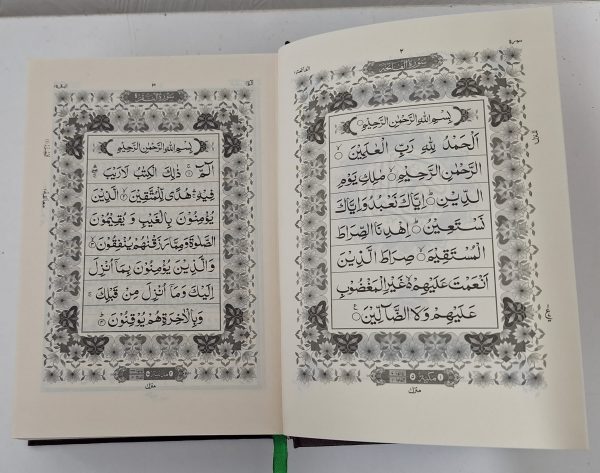 ٢
سورة الفاتحة
بِسْمِ اللهِ الرَّحْمٰنِ الرَّحِيْمِ
اَلْحَمْدُ لِلّٰهِ رَبِّ الْعٰلَمِيْنَ
الرَّحْمٰنِ الرَّحِيْمِ مٰلِكِ يَوْمِ
الدِّيْنِ اِيَّاكَ نَعْبُدُ وَاِيَّاكَ
نَسْتَعِيْنُ اِهْدِنَا الصِّرَاطَ
الْمُسْتَقِيْمَ صِرَاطَ الَّذِيْنَ
اَنْعَمْتَ عَلَيْهِمْ غَيْرِ الْمَغْضُوْبِ
عَلَيْهِمْ وَلَا الضَّآلِّيْنَ
منزل
٣
سورة البقرة
بِسْمِ اللهِ الرَّحْمٰنِ الرَّحِيْمِ
الٓمّٓ ذٰلِكَ الْكِتٰبُ لَا رَيْبَ
فِيْهِ هُدًى لِّلْمُتَّقِيْنَ الَّذِيْنَ
يُؤْمِنُوْنَ بِالْغَيْبِ وَيُقِيْمُوْنَ
الصَّلٰوةَ وَمِمَّا رَزَقْنٰهُمْ يُنْفِقُوْنَ
وَالَّذِيْنَ يُؤْمِنُوْنَ بِمَآ اُنْزِلَ
اِلَيْكَ وَمَآ اُنْزِلَ مِنْ قَبْلِكَ
وَبِالْاٰخِرَةِ هُمْ يُوْقِنُوْنَ
منزل